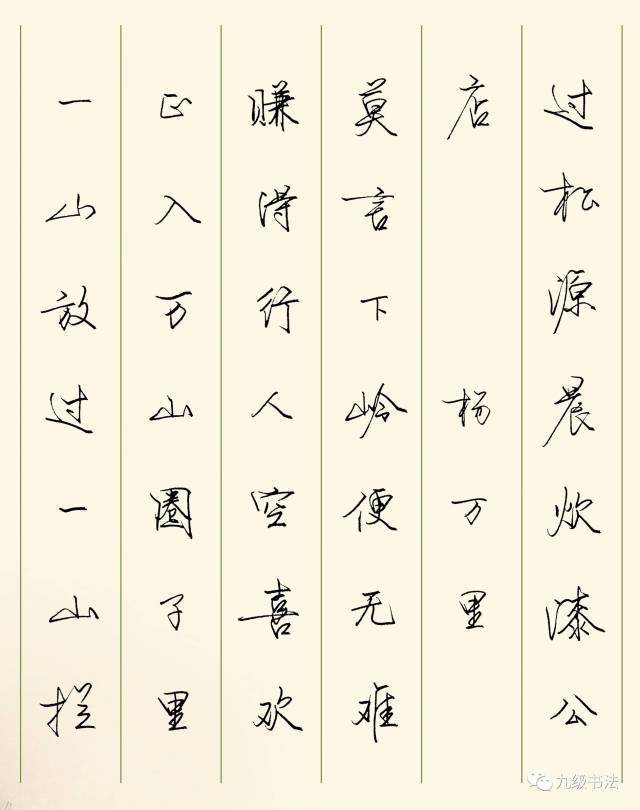 过松源晨炊漆公
店 杨万里
莫言下岭便无难
赚得行人空喜欢
正入万山圈子里
一山放过一山拦
九级书法